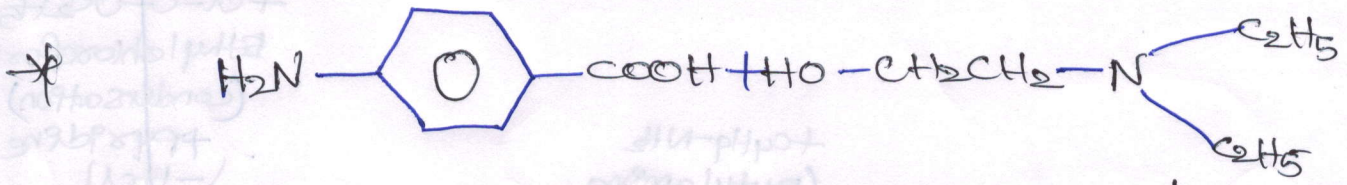 * H₂N COOH + HO - CH₂CH₂ - N C₂H₅
C₂H₅